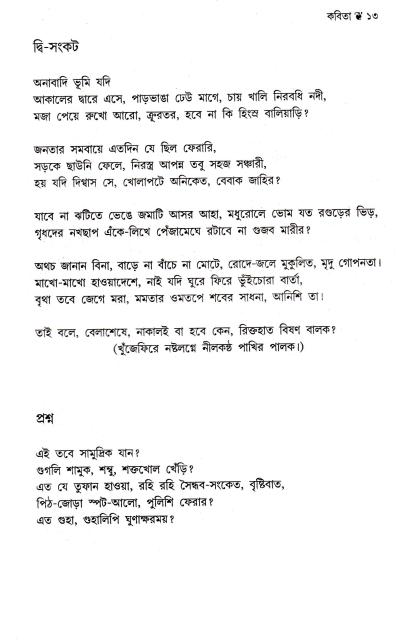 কবিতা ❦ ১৩
দ্বি-সংকট
অনাবাদি ভূমি যদি
আকালের দ্বারে এসে, পাড়ভাঙা ঢেউ মাগে, চায় খালি নিরবধি নদী,
মজা পেয়ে রুখো আরো, ক্রূরতর, হবে না কি হিংস্র বালিয়াড়ি?
জনতার সমবায়ে এতদিন যে ছিল ফেরারি,
সড়কে ছাউনি ফেলে, নিরস্ত্র আপন্ন তবু সহজ সঞ্চারী,
হয় যদি দিগ্বাস সে, খোলাপটে অনিকেত, বেবাক জাহির?
যাবে না ঝটিতে ভেঙে জমাটি আসর আহা, মধুরোলে ভোম যত রগুড়ের ভিড়,
গৃধদের নখছাপ এঁকে-লিখে পেঁজামেঘে রটাবে না গুজব মারীর?
অথচ জানান বিনা, বাড়ে না বাঁচে না মোটে, রোদে-জলে মুকুলিত, মৃদু গোপনতা।
মাখো-মাখো হাওয়াদেশে, নাই যদি ঘুরে ফিরে ভুঁইচোরা বার্তা,
বৃথা তবে জেগে মরা, মমতার ওমতপে শবের সাধনা, আনিশি তা।
তাই বলে, বেলাশেষে, নাকালই বা হবে কেন, রিক্তহাত বিষণ বালক?
(খুঁজেফিরে নষ্টলগ্নে নীলকন্ঠ পাখির পালক।)
প্রশ্ন
এই তবে সামুদ্রিক যান?
গুগলি শামুক, শম্বু, শক্তখোল খেঁড়ি?
এত যে তুফান হাওয়া, রহি রহি সৈন্ধব-সংকেত, বৃষ্টিবাত,
পিঠ-জোড়া স্পট-আলো, পুলিশি ফেরার?
এত গুহা, গুহালিপি ঘুণাক্ষরময়?